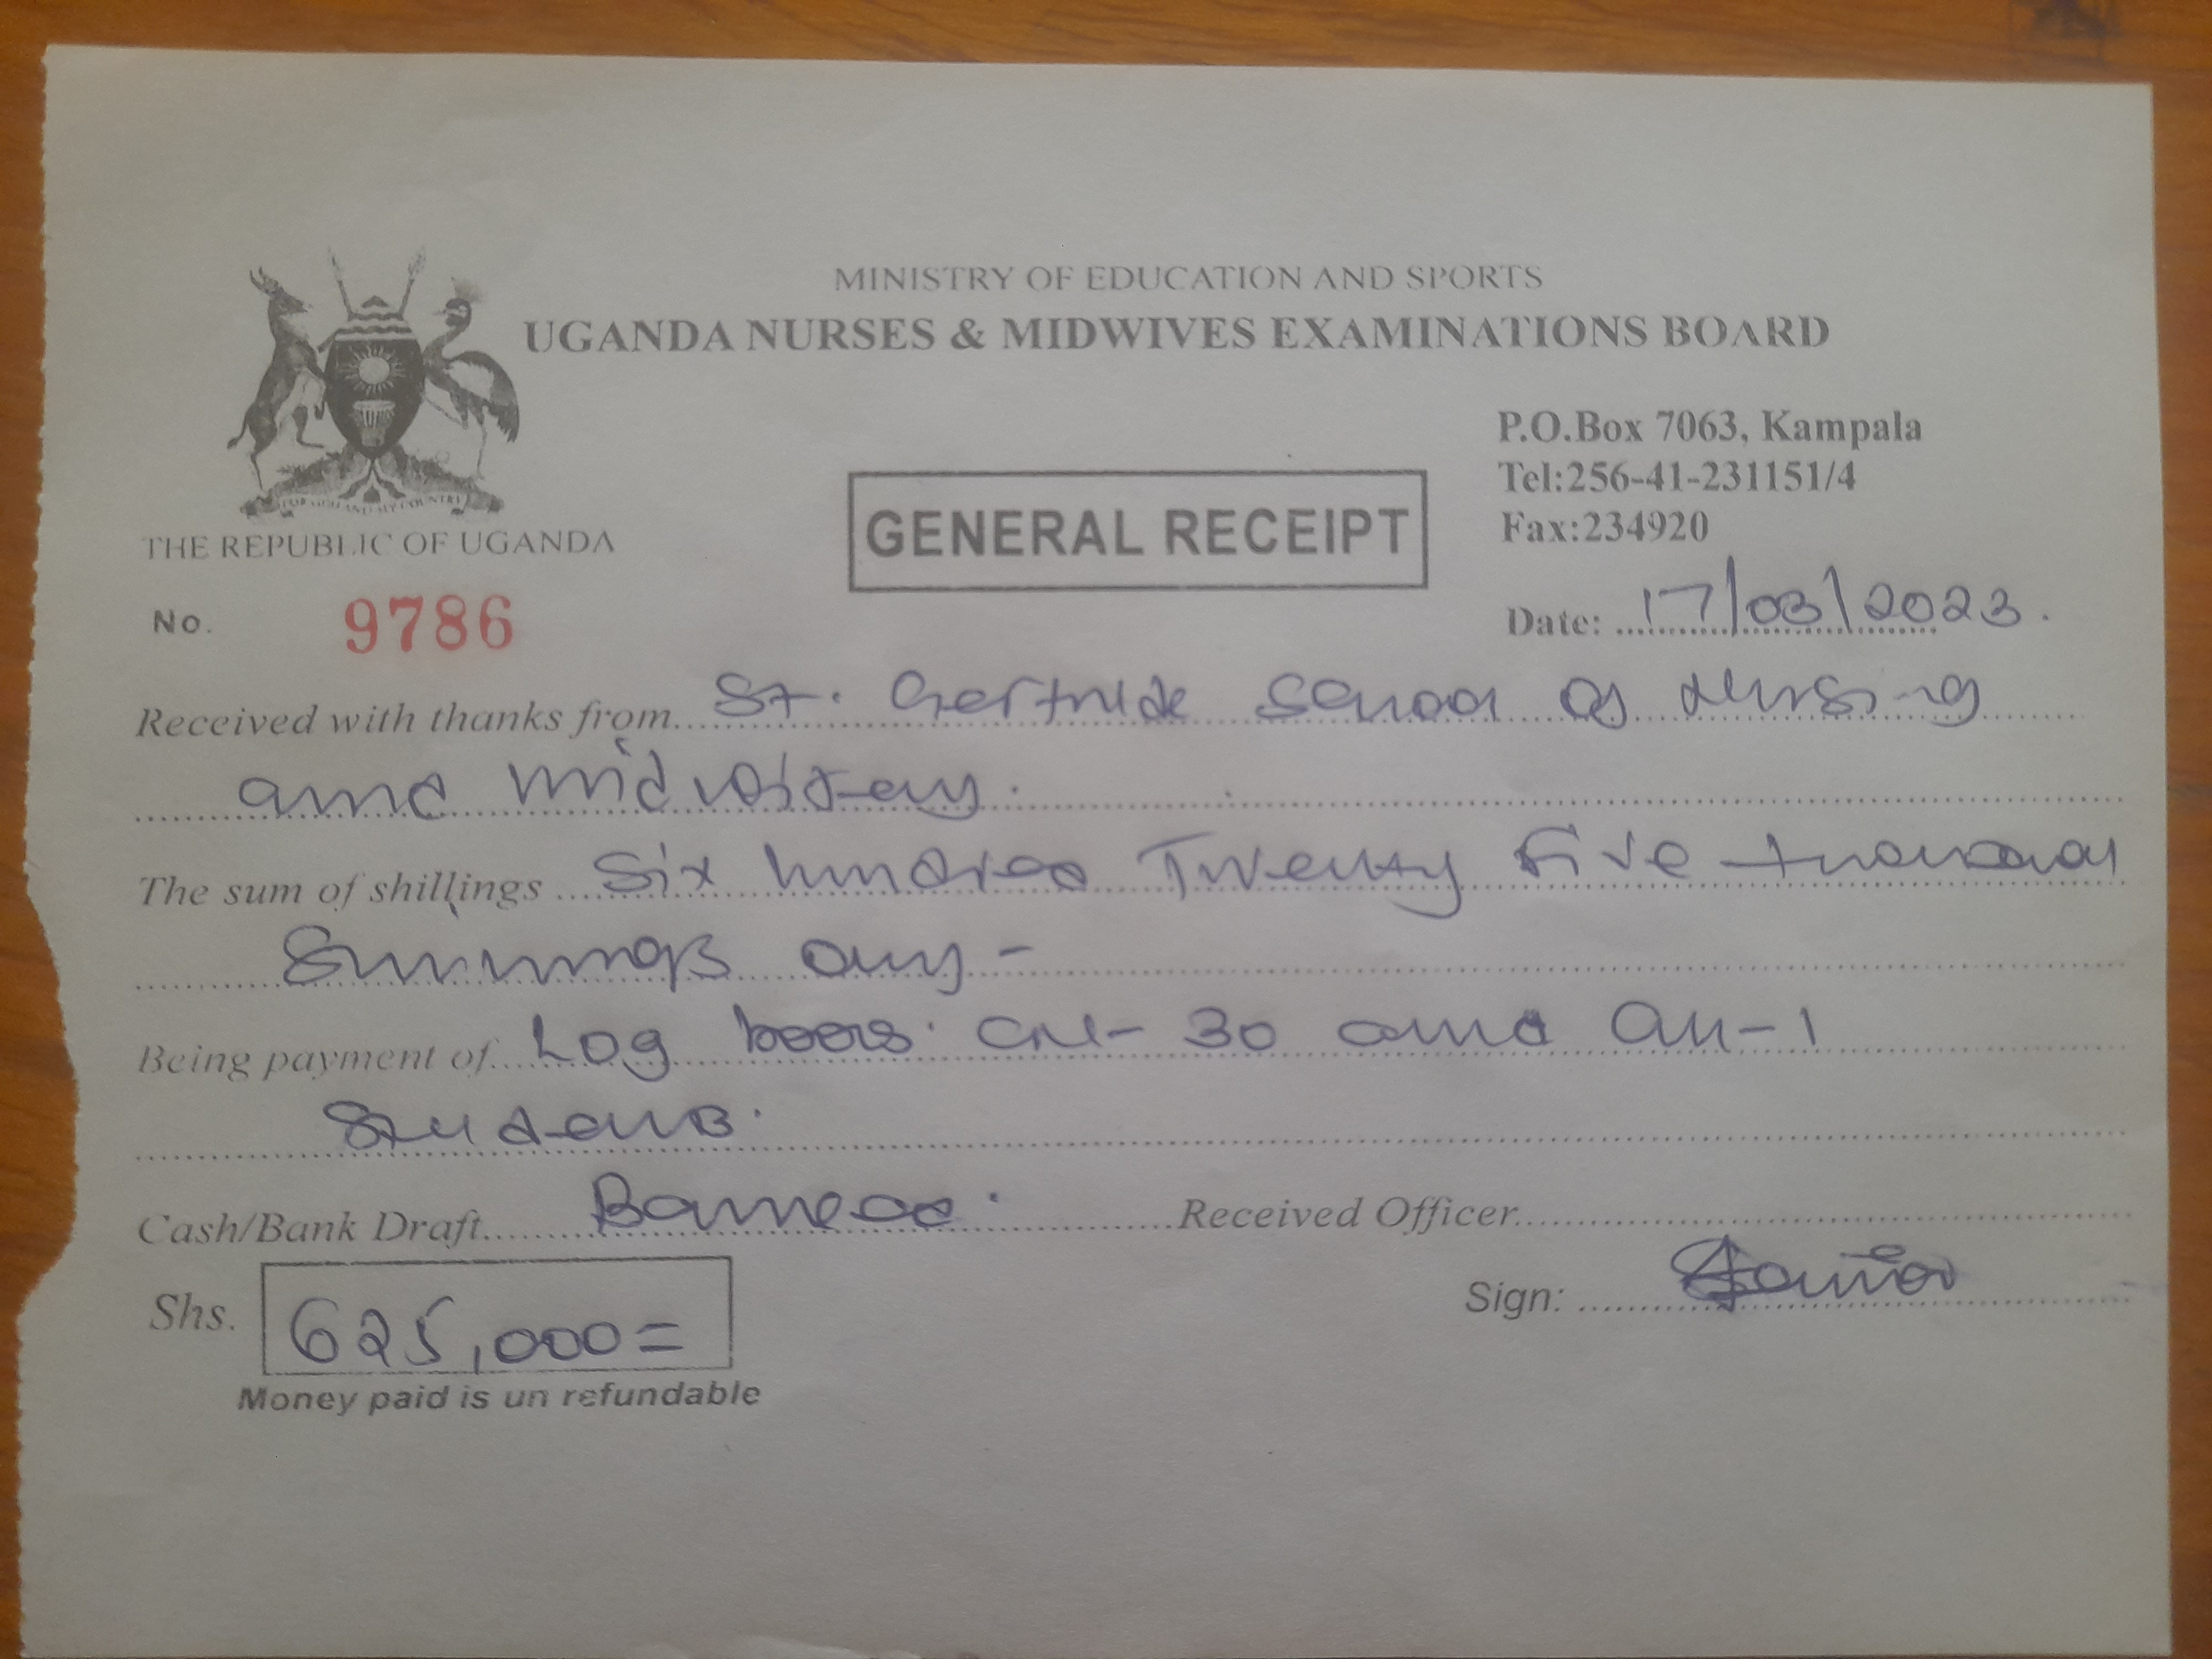 MINISTRY OF EDUCATION AND SPORTS
UGANDA NURSES & MIDWIVES EXAMINATIONS BOARD
P.O.Box 7063, Kampala
Tel:256-41-231151/4
Fax:234920
THE REPUBLIC OF UGANDA
GENERAL RECEIPT
No. 9786 Date: 17/08/2023.
Received with thanks from St. Gertrude School of Nursing
and Midwifery.
The sum of shillings Six hundred Twenty five thousand
Shillings only -
Being payment of Log books. CN - 30 and CM - 1
Students.
Cash/Bank Draft Banked. Received Officer
Shs. 625,000=
Sign:
Money paid is un refundable